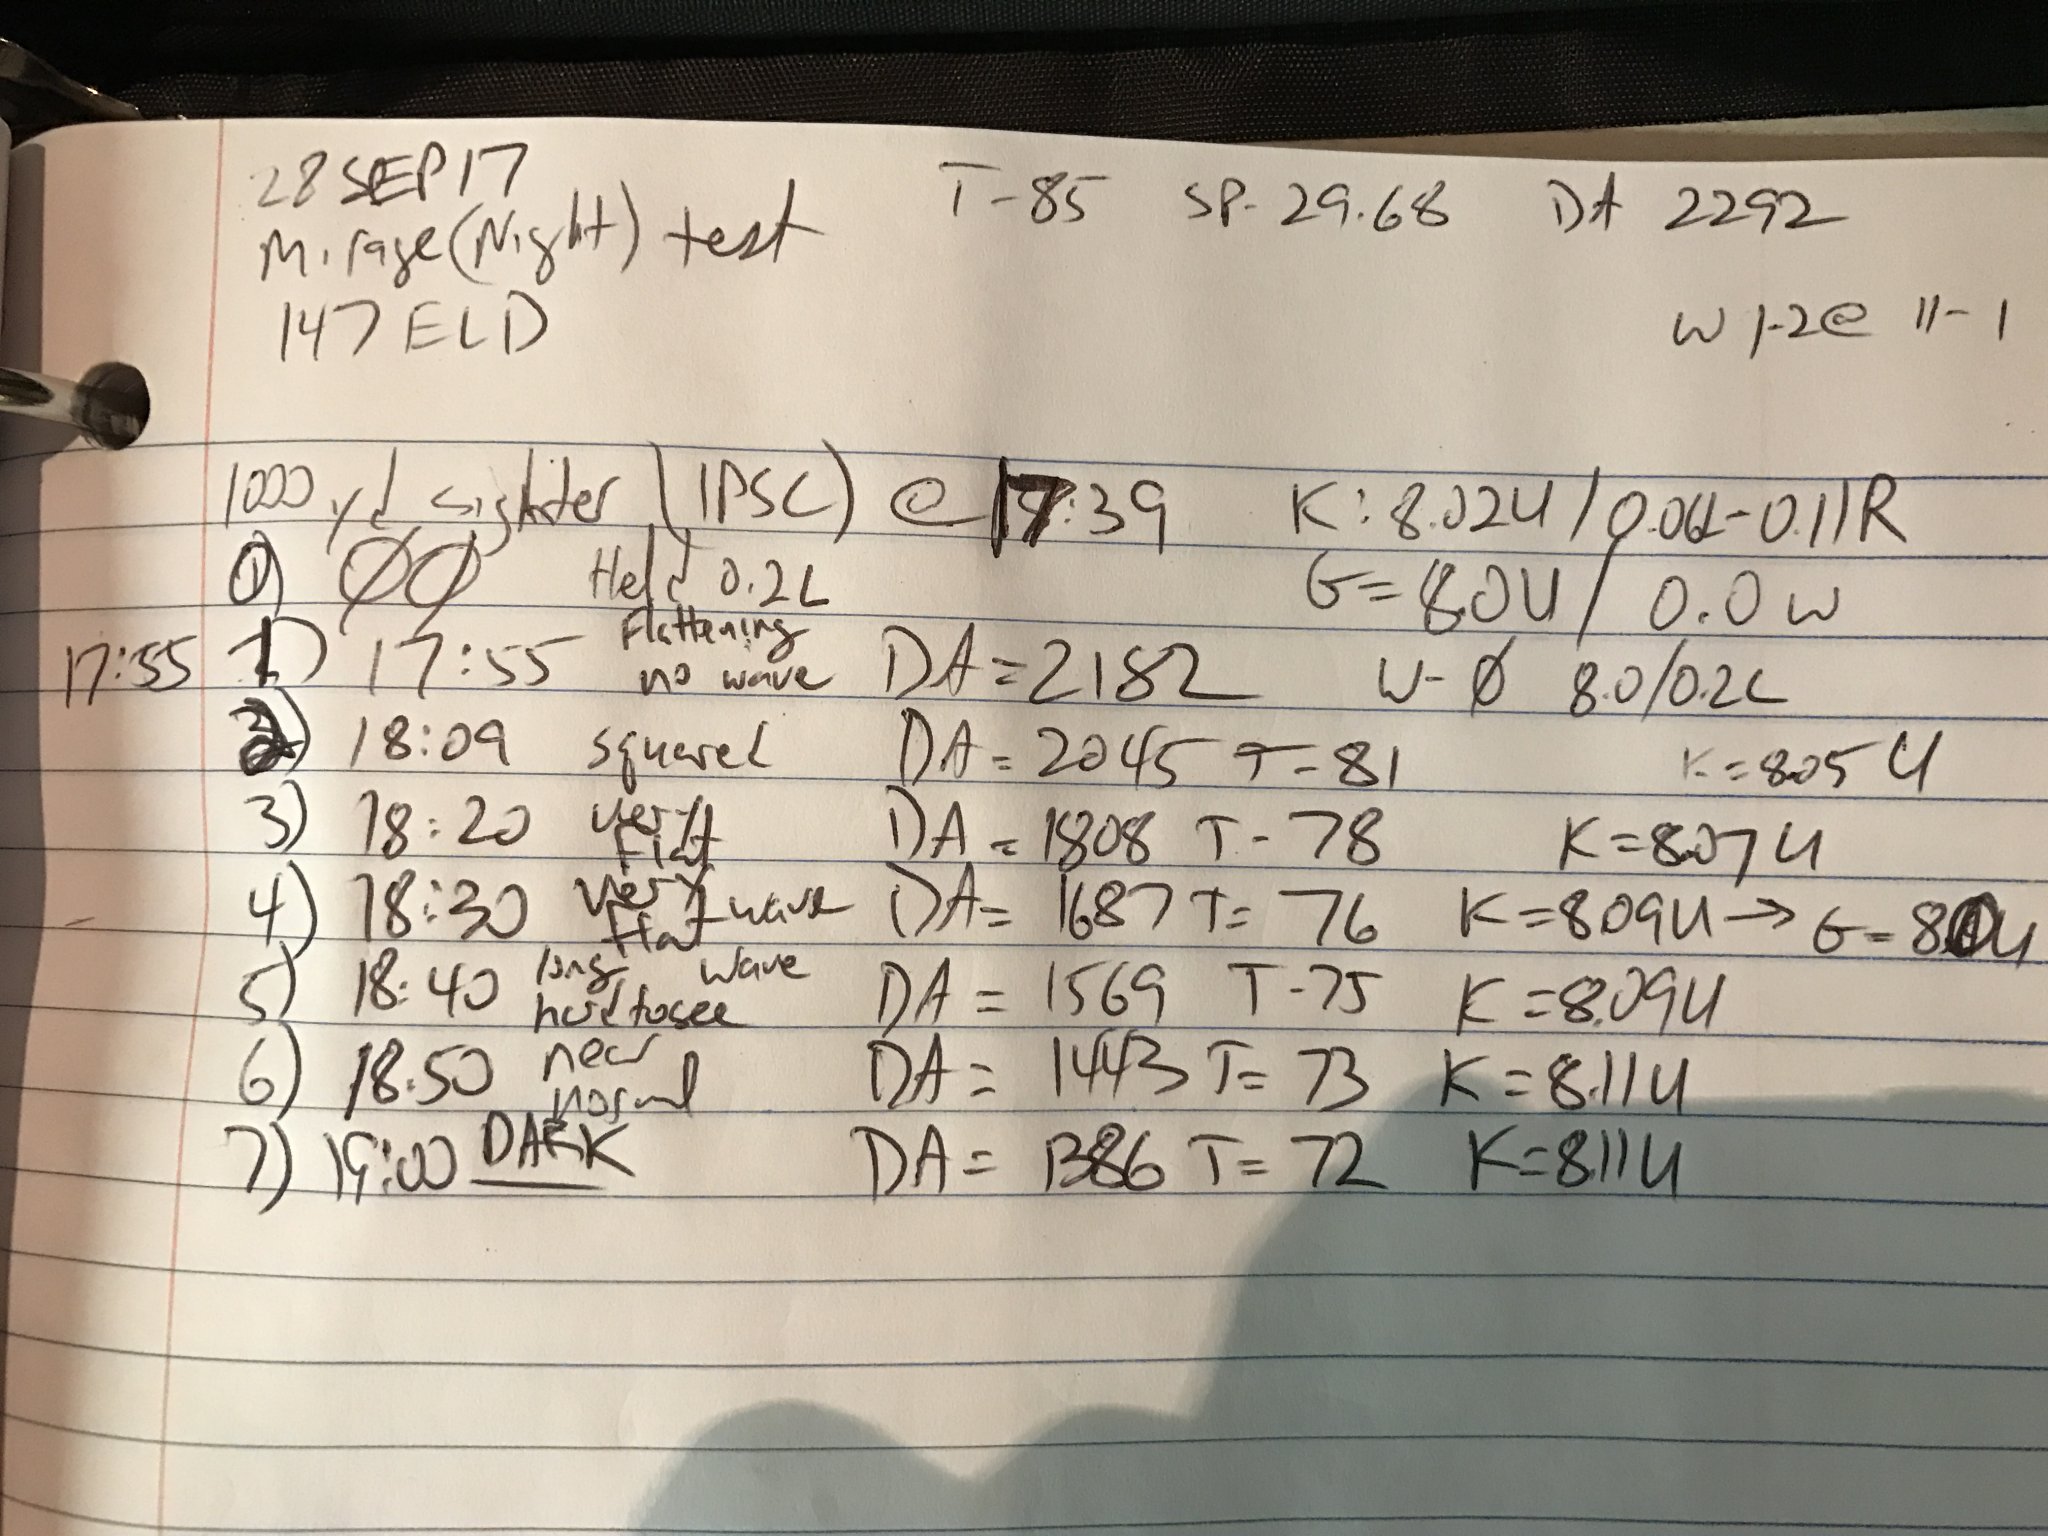 28 SEP 17 T-85 SP- 29.68 DA 2292
Mirage (Night) test
147 ELD W 1-2 @ 11-1
1000 yd sighter (IPSC) @ 17:39 K: 8.02U / 0.06L-0.11R
① ØØ Held 0.2L G= 8.0U / 0.0 W
17:55 1) 17:55 Flattening no wave DA = 2182 W-Ø 8.0/0.2L
2) 18:09 squared DA = 2045 T-81 K=8.05 U
3) 18:20 very flat DA = 1808 T-78 K=8.07U
4) 18:30 very flat wave DA= 1687 T= 76 K=8.09U → G=8.0U
5) 18:40 long wave hard to see DA = 1569 T-75 K=8.09U
6) 18:50 near normal DA = 1443 T= 73 K=8.11U
7) 19:00 DARK DA = 1386 T= 72 K=8.11U